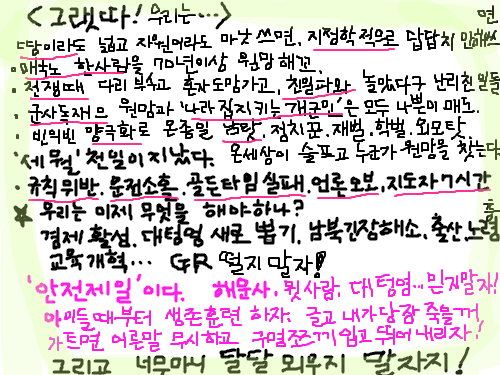 <그랬따! 우리는...> 면
땅이라도 넓고 자원이라도 마낫쓰면, 지정학적으로 답답치 안해쓰
매국노 한사람을 70년이상 원망해꼬.
전쟁때 다리 부수고 혼자도망가고, 친일파와 놀았다구 난리친분들
군사독재 원망과 '나라 집지키는 개군인'은 모두 나쁜이 매도.
빈익빈 양극화로 온종일 남탓. 정치꾼. 재벌. 학벌. 외모탓.
'세월'천일이 지났다. 온세상이 슬프고 누군가 원망을 찾는다
규칙위반. 운전소홀. 골든타임 실패. 언론오보. 지도자 7시간
★ 우리는 이제 무엇을 해야하나?
경제 활성. 대텅영 새로 뽑기. 남북긴장해소. 출산 노령
교육개혁... GR 떨지 말자!
'안전제일'이다. 해운사. 윗사람. 대텅염... 믿지말자!
아이들때부터 생존훈련 하자. 글고 내가 당장 죽을꺼
가트면 어른말 무시하고 구명조끼 입고 뛰어내리자!
그리고 너무마니 달달 외우지 말자지!